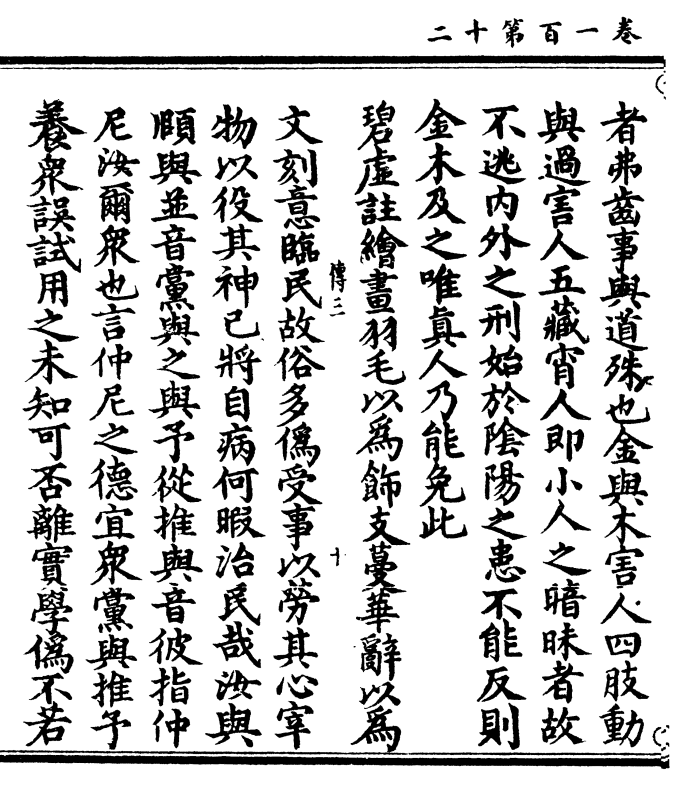 卷一百第十二
者弗齒事與道殊也金與木害人四肢動
與過害人五藏宵人即小人之暗昧者故
不逃內外之刑始於陰陽之患不能反則
金木及之唯眞人乃能免此
碧虛註繪畫羽毛以爲飾支蔓華辭以爲
傳三
十
文刻意臨民故俗多僞受事以勞其心宰
物以役其神已將自病何暇治民哉汝與
頤與並音黨與之與予從推與音彼指仲
尼汝爾衆也言仲尼之德宜衆黨與推予
養衆誤試用之未知可否離實學僞不若